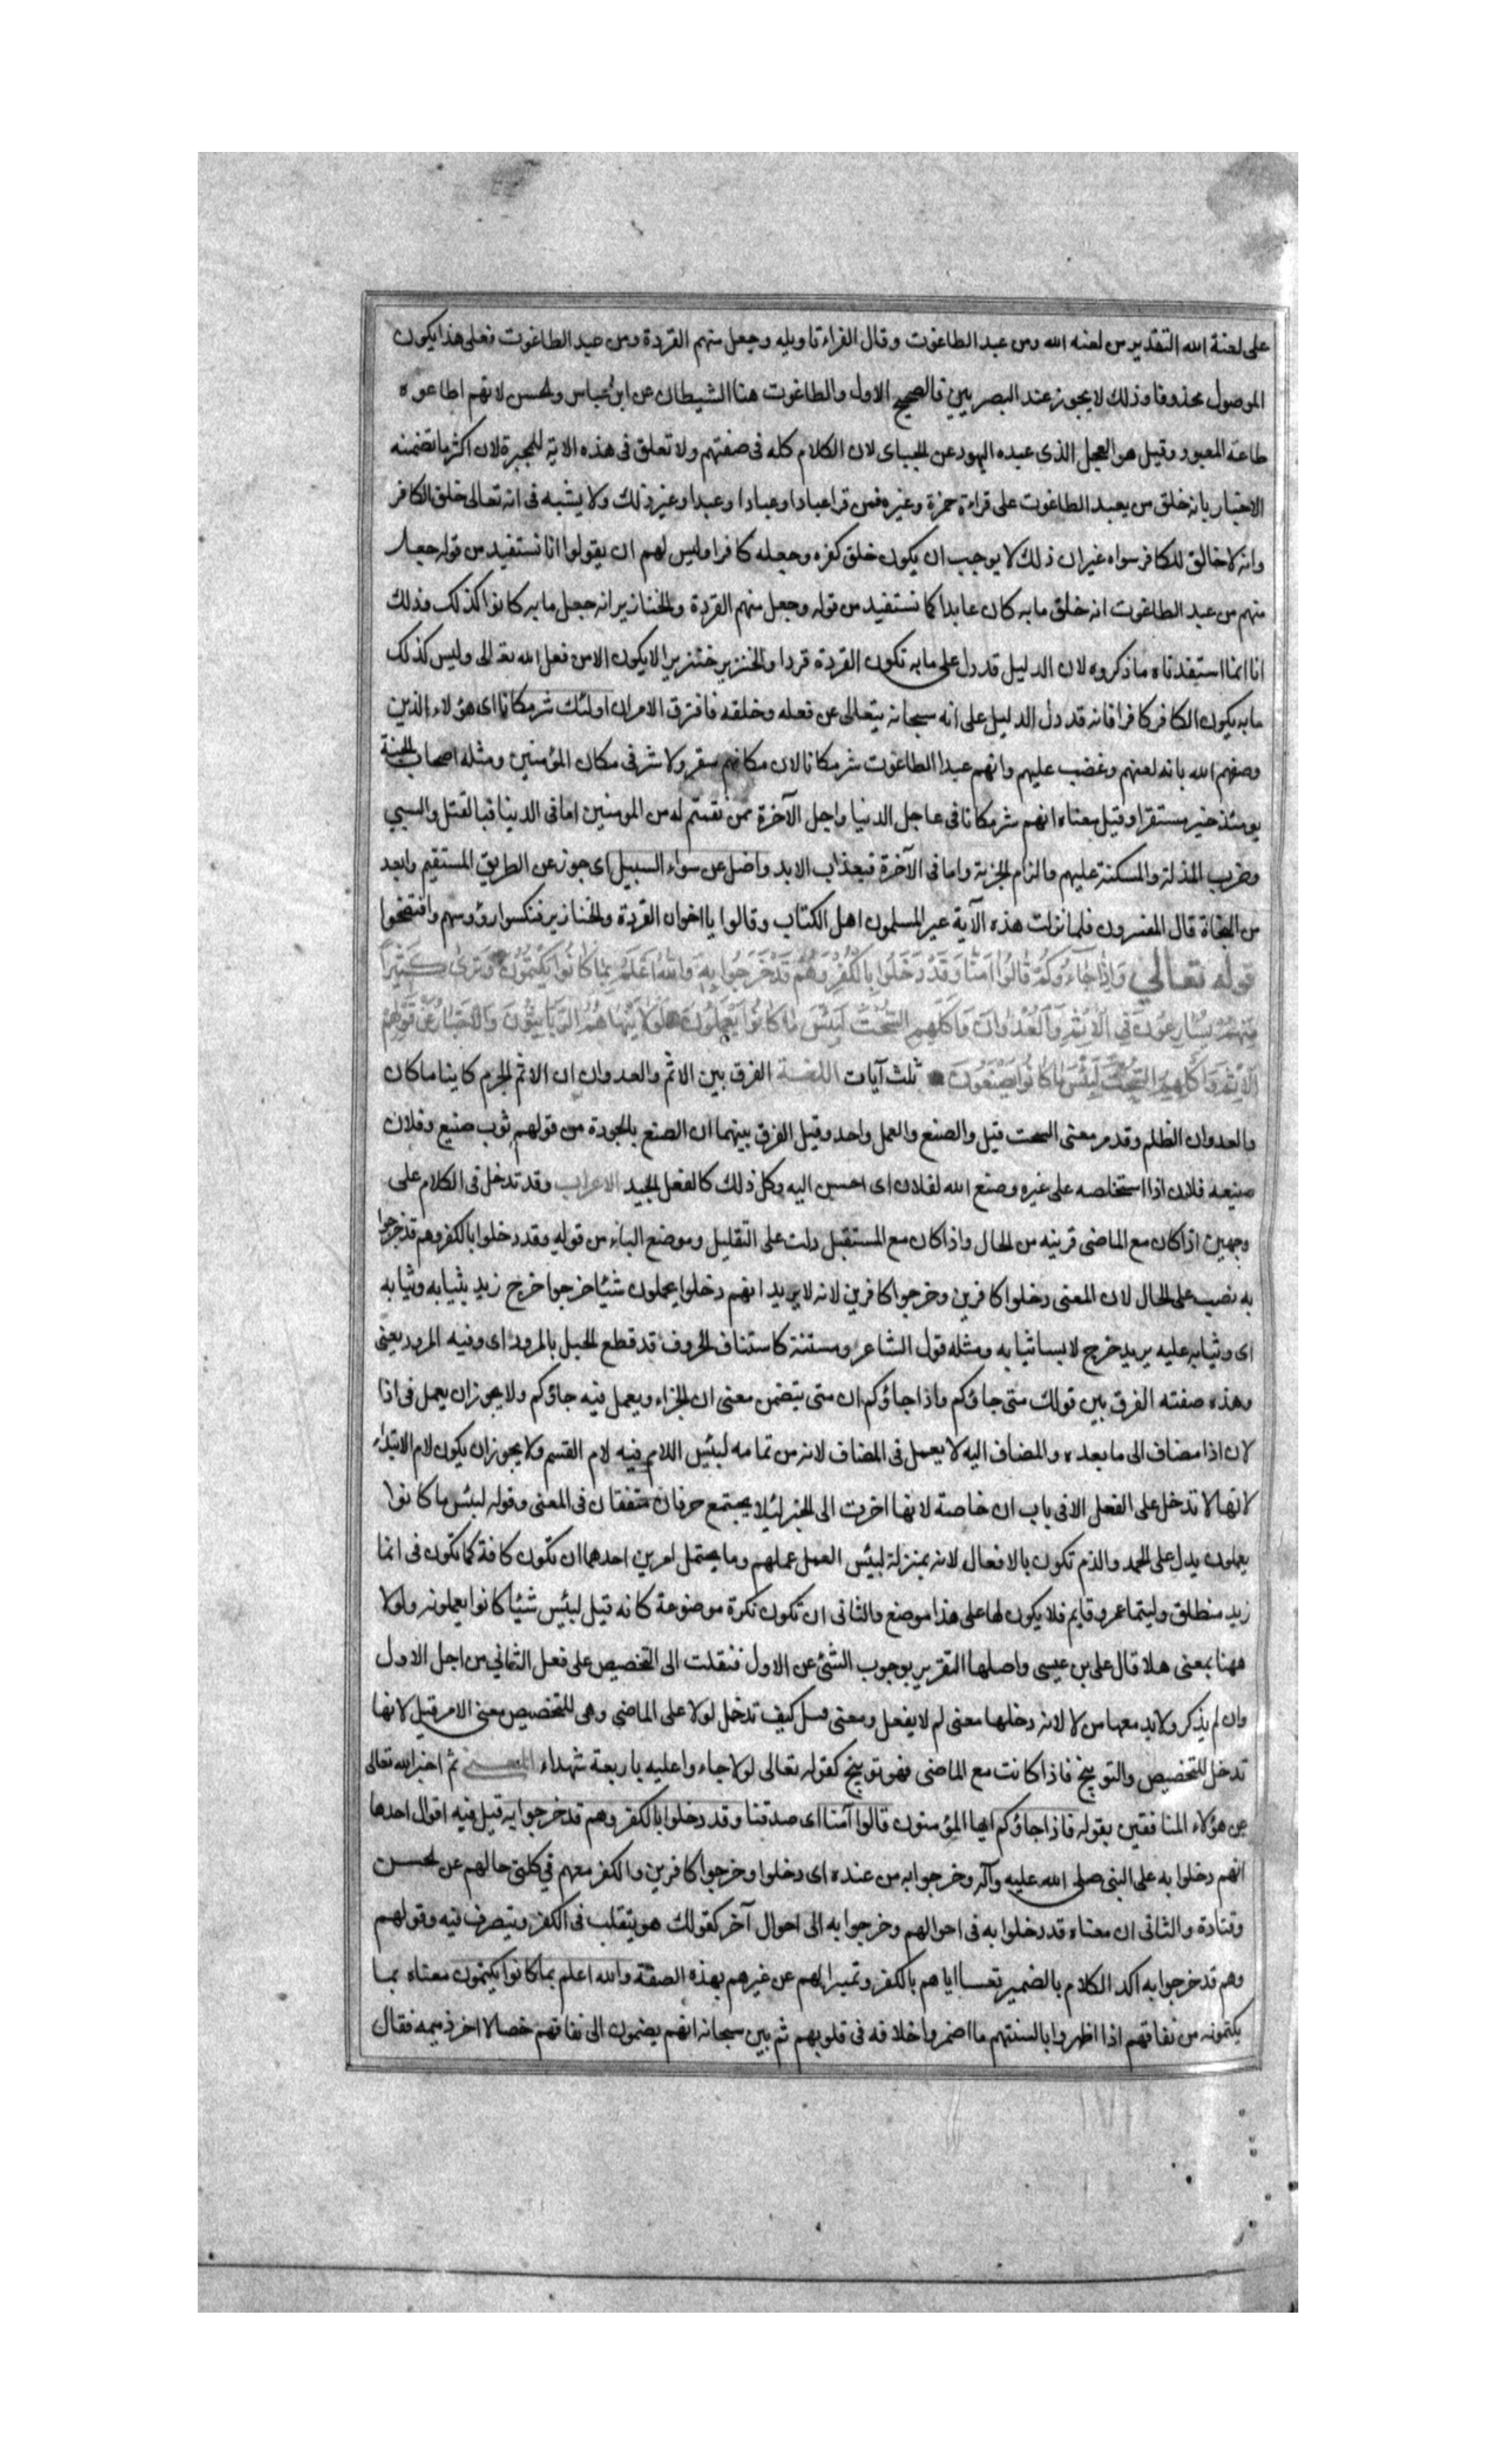 على لعنة الله التقدير من لعنه الله ومن عبد الطاغوت وقال الفراء تاويله وجعل منهم القردة ومن عبد الطاغوت فعلى هذا يكون
الموصول محذوفا وذلك لا يجوز عند البصريين فالصحيح الاول والطاغوت هنا الشيطان عن ابن عباس والحسن لانهم اطاعوه
طاعة المعبود وقيل هو العجل الذى عبده اليهود عن الجباى لان الكلام كله فى صفتهم ولا تعلق فى هذه الاية للمجبرة لان اكثر ما تضمنه
الاخبار بانه خلق من يعبد الطاغوت على قراءة حمزة وغيره فمن قرا عبادا وعبادا وعبدا وغير ذلك ولا يشبه فى انه تعالى خلق الكافر
وانه لا خالق للكافر سواه غير ان ذلك لا يوجب ان يكون خلق كفره وجعله كافرا وليس لهم ان يقولوا انا نستفيد من قوله جعل
منهم من عبد الطاغوت انه خلق ما به كان عابدا كما نستفيد من قوله وجعل منهم القردة والخنازير انه جعل ما به كانوا كذلك وذلك
انا انما استفدناه ما ذكروه لان الدليل قد دل على ما به تكون القردة قردا والخنزير خنزيرا لا يكون الا من فعل الله تعالى وليس كذلك
ما به يكون الكافر كافرا فانه قد دل الدليل على انه سبحانه يتعالى عن فعله وخلقه فافترق الامران اولئك شر مكانا اى هؤلاء الذين
وصفهم الله بانه لعنهم وغضب عليهم وانهم عبدا الطاغوت شر مكانا لان مكانهم سقر ولا شر فى مكان المؤمنين ومثله اصحاب الجنة
يومئذ خير مستقرا وقيل معناه انهم شر مكانا فى عاجل الدنيا واجل الآخرة ممن نقمتم له من المومنين اما فى الدنيا فبالقتل والسبى
وضرب المذلة والمسكنة عليهم والزام الجزية واما فى الآخرة فبعذاب الابد واضل عن سواء السبيل اى جوز عن الطريق المستقيم وابعد
من النجاة قال المفسرون فلما نزلت هذه الآية عير المسلمون اهل الكتاب وقالوا يا اخوان القردة والخنازير فنكسوا رؤوسهم وافتضحوا
قوله تعالى وَاِذَا جَاءُوكُمْ قَالُوا اٰمَنَّا وَقَدْ دَخَلُوا بِالْكُفْرِ وَهُمْ قَدْ خَرَجُوا بِهِ وَاللهُ اَعْلَمُ بِمَا كَانُوا يَكْتُمُونَ وَتَرَى كَثِيرًا
مِنْهُمْ يُسَارِعُونَ فِى الْاِثْمِ وَالْعُدْوَانِ وَاَكْلِهِمِ السُّحْتَ لَبِئْسَ مَا كَانُوا يَعْمَلُونَ لَوْلَا يَنْهَاهُمُ الرَّبَّانِيُّونَ وَالْاَحْبَارُ عَنْ قَوْلِهِمُ
الْاِثْمَ وَاَكْلِهِمِ السُّحْتَ لَبِئْسَ مَا كَانُوا يَصْنَعُونَ ثلث آيات اللغة الفرق بين الاثم والعدوان ان الاثم الجرم كاينا ما كان
والعدوان الظلم وقد مر معنى السحت قيل والصنع والعمل واحد وقيل الفرق بينهما ان الصنع بالجودة من قولهم ثوب صنيع وفلان
صنيعه فلان اذا استخلصه على غيره وصنع الله لفلان اى احسن اليه وكل ذلك كالفعل الجيد الاعراب وقد تدخل فى الكلام على
وجهين اذا كان مع الماضى قربته من الحال واذا كان مع المستقبل دلت على التقليل وموضع الباء من قوله وقد دخلوا بالكفر وهم قد خرجوا
به نصب على الحال لان المعنى دخلوا كافرين وخرجوا كافرين لانه لا يريد انهم دخلوا يحملون شيئا خرجوا خرج زيد بثيابه وثيابه
اى وثيابه عليه يريد خرج لابسا ثيابه ومثله قول الشاعر ومستنة كاستناف الخروف قد قطع الحبل بالمرود اى وفيه المرود يعنى
وهذه صفته الفرق بين قولك متى جاؤكم واذا جاؤكم ان متى يتضمن معنى ان الجزاء ويعمل فيه جاؤكم ولا يجوز ان يعمل فى اذا
لان اذا مضاف الى ما بعده والمضاف اليه لا يعمل فى المضاف لانه من تمامه لبئس اللام فيه لام القسم ولا يجوز ان يكون لام الابتداء
لانها لا تدخل على الفعل الا فى باب ان خاصة لانها اخرت الى الخبر لئلا يجتمع حرفان متفقان فى المعنى وقوله لبئس ما كانوا
يعملون يدل على الحمد والذم تكون بالافعال لانه بمنزلة لبئس العمل عملهم وما يحتمل امرين احدهما ان تكون كافة كما تكون فى انما
زيد منطلق وليتما عمرو قايم فلا يكون لها على هذا موضع والثانى ان تكون نكرة موضوعة كانه قيل لبئس شيئا كانوا يعملونه ولولا
ههنا بمعنى هلا قال على بن عيسى واصلها التقرير بوجوب الشئ عن الاول فنقلت الى التخصيص على فعل الثانى من اجل الاول
وان لم يذكر ولابد معها من لا لانه دخلها معنى لم لا يفعل ومعنى فسل كيف تدخل لولا على الماضى وهى للتخصيص معنى الامر قيل لانها
تدخل للتخصيص والتوبيخ فاذا كانت مع الماضى فهو توبيخ كقوله تعالى لولا جاء وا عليه باربعة شهداء المعنى ثم اخبر الله تعالى
عن هؤلاء المنافقين بقوله فاذا جاؤكم ايها المؤمنون قالوا آمنا اى صدقنا وقد دخلوا بالكفر وهم قد خرجوا به قيل فيه اقوال احدها
انهم دخلوا به على النبى صلى الله عليه وآله وخرجوا به من عنده اى دخلوا وخرجوا كافرين والكفر معهم فى كلتى حالهم عن الحسن
وقتادة والثانى ان معناه قد دخلوا به فى احوالهم وخرجوا به الى احوال آخر كقولك هو يتقلب فى الكفر ويتصرف فيه وقولهم
وهم قد خرجوا به اكد الكلام بالضمير تعسا اياهم بالكفر وتميزا لهم عن غيرهم بهذه الصفة والله اعلم بما كانوا يكتمون معناه بما
يكتمونه من نفاقهم اذا اظهروا بالسنتهم ما اضمروا خلافه فى قلوبهم ثم بين سبحانه انهم يضمون الى نفاقهم خصالا اخر ذميمه فقال